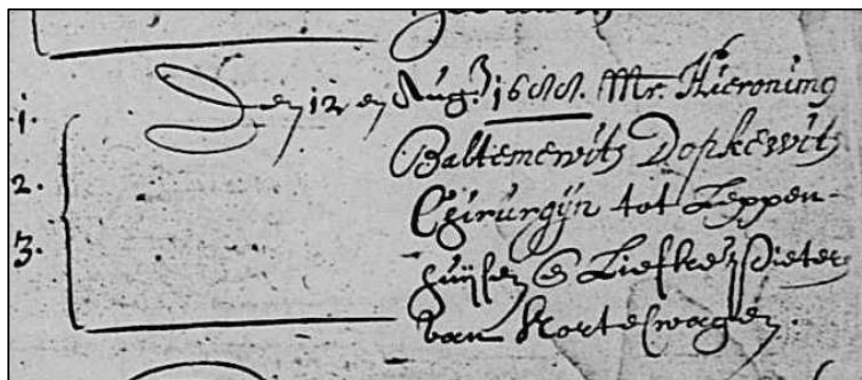 1. Den 12 en Aug: 1688. Mr. Hieronimg
2. Baltemewitz Dopkewitz
Chirurgijn tot Leppen-
3. huijsen & Liefke Pieter
van Korteswagen.